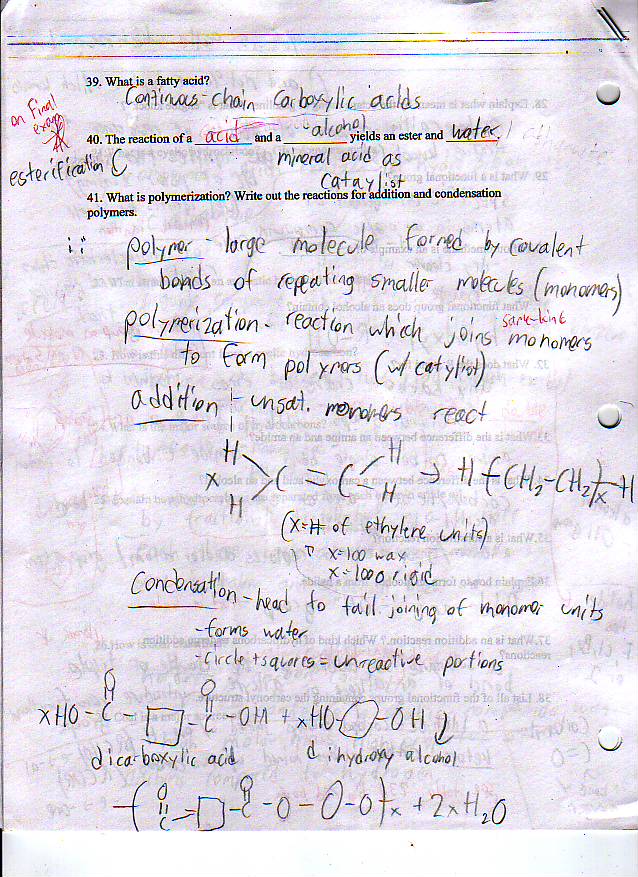 39. What is a fatty acid?
Continuos-chain Carboxylic acids
on Final exam
40. The reaction of a acid and a alcohol yields an ester and water.
esterification
mineral acid as
cataylist
41. What is polymerization? Write out the reactions for addition and condensation
polymers.
polymer - large molecule formed by covalent
bonds of repeating smaller molecules (monomers)
polymerization - reaction which joins same-kind monomers
to form polymers (w/ catylist)
addition - unsat. monomers react
H H
x C = C → H-(CH2-CH2)x-H
H H
(x=# of ethylene units)
x=100 wax
x=1000 rigid
Condensation - head to tail joining of monomer units
- forms water
- circle + squares = unreactive portions
O O
xHO-C-□-C-OH + xHO-○-OH
dicarboxylic acid dihydroxy alcohol
O O
-(C-□-C-O-○-O)x + 2xH2O